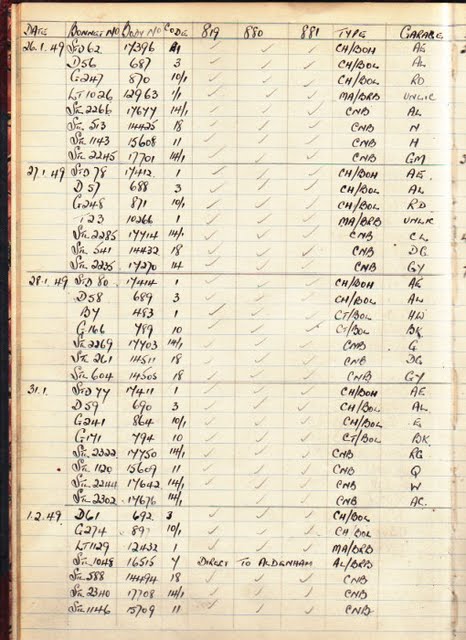 DATE BONNET NO BODY NO CODE 819 880 881 TYPE GARAGE
26.1.49 STD 62 17396 1 ✓ ✓ ✓ CH/BOH AE
D56 687 3 ✓ ✓ ✓ CH/BOL AL
G247 870 10/1 ✓ ✓ ✓ CH/BOL RD
LT1026 12963 1/1 ✓ ✓ ✓ MA/BRB UNLIC
STL 2266 17677 14/1 ✓ ✓ ✓ CNB AL
STL 513 14425 18 ✓ ✓ ✓ CNB N
STL 1143 15608 11 ✓ ✓ ✓ CNB H
STL 2245 17701 14/1 ✓ ✓ ✓ CNB GM
27.1.49 STD 78 17412 1 ✓ ✓ ✓ CH/BOH AE
D57 688 3 ✓ ✓ ✓ CH/BOL AL
G248 871 10/1 ✓ ✓ ✓ CH/BOL RD
T23 10266 1 ✓ ✓ ✓ MA/BRB UNLIC
STL 2285 17714 14/1 ✓ ✓ ✓ CNB CL
STL 541 14432 18 ✓ ✓ ✓ CNB DG
STL 2235 17270 14 ✓ ✓ ✓ CNB GY
28.1.49 STD 80 17414 1 ✓ ✓ ✓ CH/BOH AE
D58 689 3 ✓ ✓ ✓ CH/BOL AL
B7 483 1 ✓ ✓ ✓ CT/BOL HW
G166 789 10 ✓ ✓ ✓ CT/BOL BK
STL 2269 17703 14/1 ✓ ✓ ✓ CNB G
STL 261 14511 18 ✓ ✓ ✓ CNB DG
STL 604 14505 18 ✓ ✓ ✓ CNB GY
31.1. STD 77 17411 1 ✓ ✓ ✓ CH/BOH AE
D59 690 3 ✓ ✓ ✓ CH/BOL AL
G241 864 10/1 ✓ ✓ ✓ CH/BOL E
G171 794 10 ✓ ✓ ✓ CT/BOL BK
STL 2322 17750 14/1 ✓ ✓ ✓ CNB RG
STL 1120 15609 11 ✓ ✓ ✓ CNB Q
STL 2244 17642 14/1 ✓ ✓ ✓ CNB W
STL 2302 17676 14/1 ✓ ✓ ✓ CNB AC
1.2.49 D61 692 3 ✓ ✓ ✓ CH/BOL
G274 897 10/1 ✓ ✓ ✓ CH/BOL
LT1129 12432 1 ✓ ✓ ✓ MA/BRB
STL 1048 16515 7 DIRECT TO ALDENHAM AL/BRB
STL 588 14494 18 ✓ ✓ ✓ CNB
STL 2340 17708 14/1 ✓ ✓ ✓ CNB
STL 1146 15709 11 ✓ ✓ ✓ CNB